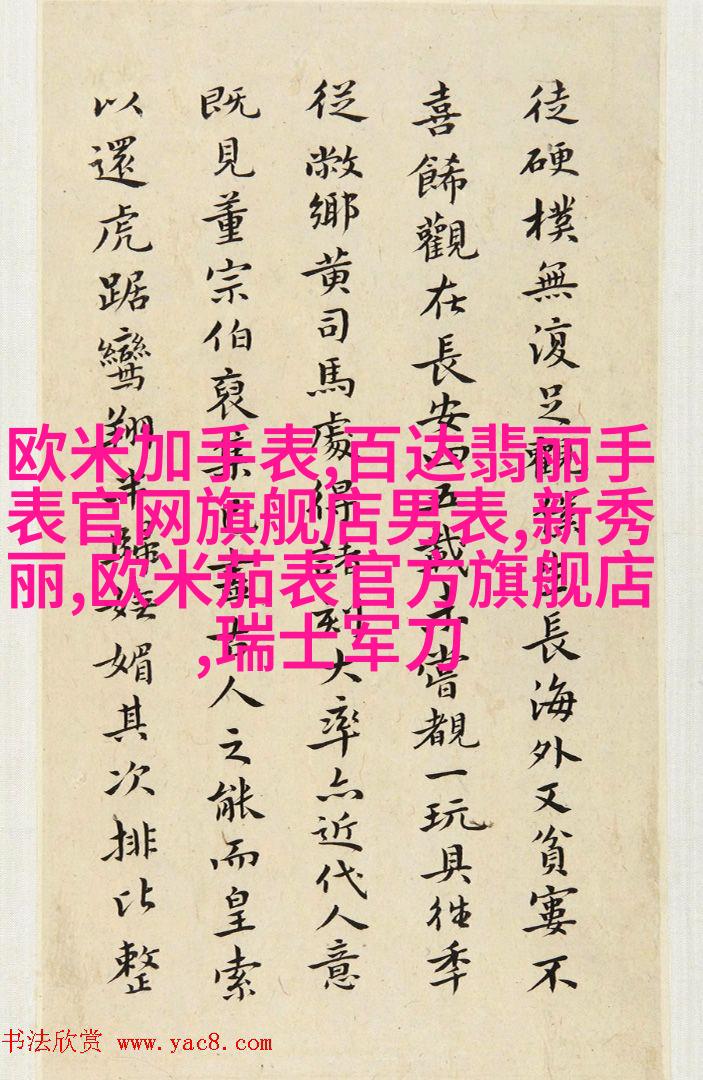 徒硬樸無復足觀僕生長海外又貧窶不
喜餙觀在長安四五載未嘗覩一玩具往年
從敝鄉黃司馬處得諸刻大率亦近代人意
既見董宗伯裒集古人之能而皇索
以還虎踞鸞翔媚其次排比整
欧米加手表,百达翡丽手
表官网旗舰店男表,新秀
丽,欧米茄表官方旗舰店
,瑞士军刀
书法欣赏 www.yac8.com